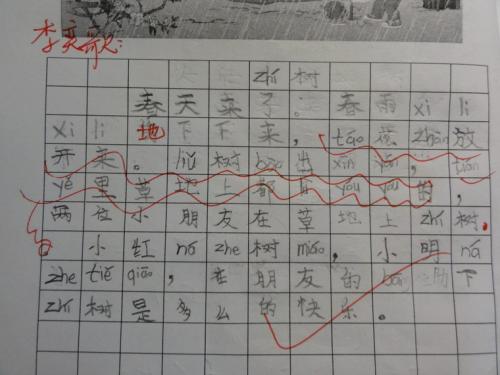 李奕歆：
zhí树
春天来了。春雨xi li
xi li 地下下来，táo花zhàn放
开来。liǔ树出xīn，tián
yě里草地上都yóu yóu的，
两位小朋友在草地上zhí树。
小红ná zhe树miáo，小明ná
zhe tiě qiāo，在朋友的bāng助下
zhí树是多么的快乐。